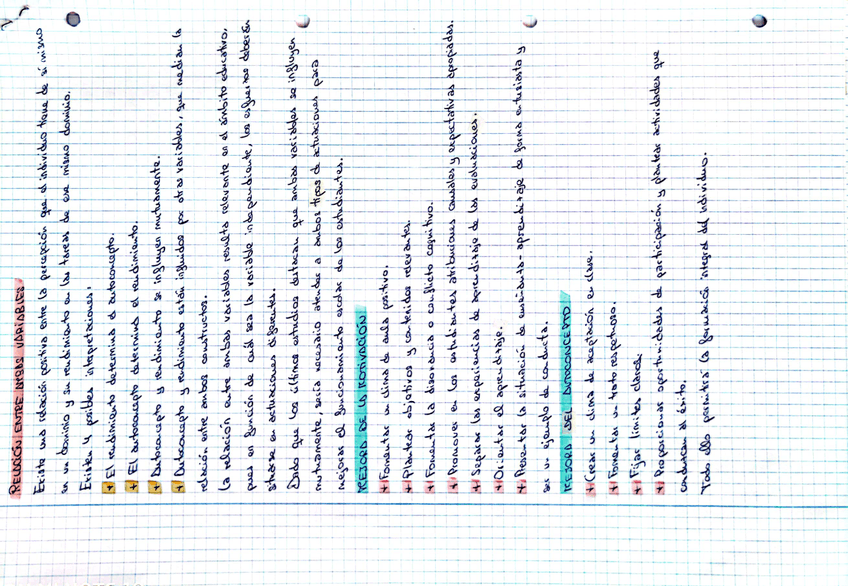 RELACIÓN ENTRE AMBAS VARIABLES
Existe una relación positiva entre la percepción que el individuo tiene de sí mismo
en un dominio y su rendimiento en las tareas de ese mismo dominio.
Existen 4 posibles interpretaciones:
+ El rendimiento determina el autoconcepto.
+ El autoconcepto determina el rendimiento.
+ Autoconcepto y rendimiento se influyen mutuamente.
+ Autoconcepto y rendimiento están influidos por otras variables, que median la
relación entre ambos constructos.
La relación entre ambas variables resulta relevante en el ámbito educativo,
pues en función de cuál sea la variable independiente, los esfuerzos deberán
situarse en actuaciones diferentes.
Dado que los últimos estudios destacan que ambas variables se influyen
mutuamente, sería necesario atender a ambos tipos de actuaciones para
mejorar el funcionamiento escolar de los estudiantes.
MEJORA DE LA MOTIVACIÓN
+ Fomentar un clima de aula positivo.
+ Plantear objetivos y contenidos relevantes.
+ Fomentar la disonancia o conflicto cognitivo.
+ Promover en los estudiantes atribuciones causales y expectativas apropiadas.
+ Separar las experiencias de aprendizaje de las evaluaciones.
+ Orientar el aprendizaje.
+ Presentar la situación de enseñanza-aprendizaje de forma entusiasta y
ser un ejemplo de conducta.
MEJORA DEL AUTOCONCEPTO
+ Crear un clima de aceptación en clase.
+ Fomentar un trato respetuoso.
+ Fijar límites claros.
+ Proporcionar oportunidades de participación y plantear actividades que
conduzcan al éxito.
Todo ello permitirá la formación integral del individuo.